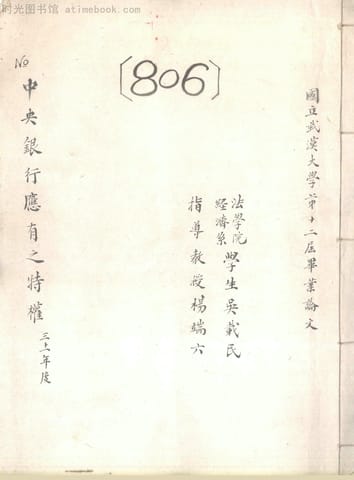 时光图书馆 - atimebook.com
國立武漢大學第十二屆畢業論文
法學院
經濟系
學生吳義民
指導教授楊端六
〔806〕
No
中央銀行應有之特權
三十一年度